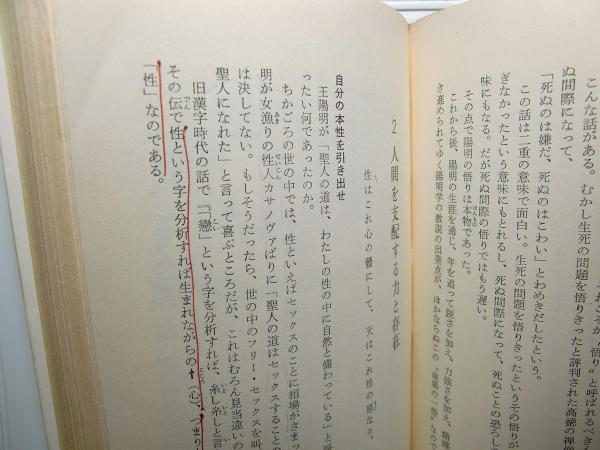 これこそが「悟り」と呼ばれるべき
こんな話がある。むかし生死の問題を悟りきったと評判された高徳の禅僧
ぬ間際になって、
「死ぬのは嫌だ、死ぬのはこわい」とわめきだしたという。
この話は二重の意味で面白い。生死の問題を悟りきったというその悟りが
ぎなかったという意味にもとれるし、死ぬ間際になって、死ぬことの恐ろしさ
味にもなる。だが死ぬ間際の悟りではもう遅い。
その点で陽明の悟りは本物であった。
これから後、陽明の生涯を通じ、年を追って鋭さを加え、力強さを加え、精確
き進められてゆく陽明学の教説の出発点が、ほかならぬこの“竜場の一悟”なので
2 人間を支配する力と存在
性はこれ心の體にして、天はこれ性の原なり。
自分の本性を引き出せ
王陽明が「聖人の道は、わたしの性の中に自然と備わっている」と
ったい何であったのか。
ちかごろの世の中では、性といえばセックスのことに相場がきまっ
明が女漁りの性人カサノヴァばりに「聖人の道はセックスすることの
は決してない。もしそうだったら、世の中のフリー・セックスを叫
聖人になれた」と言って喜ぶところだが、これはむろん見当違いの
旧漢字時代の話で『「戀」という字を分析すれば、糸し糸しと言
その伝で性という字を分析すれば生まれながらの忄(心)、つまり
「性」なのである。